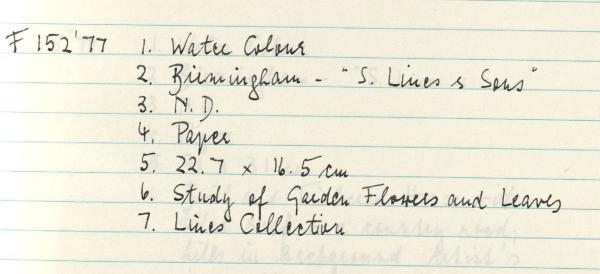 F 152'77 1. Water Colour
2. Birmingham - "S. Lines & Sons"
3. N.D.
4. Paper
5. 22.7 x 16.5 cm
6. Study of Garden Flowers and Leaves
7. Lines Collection